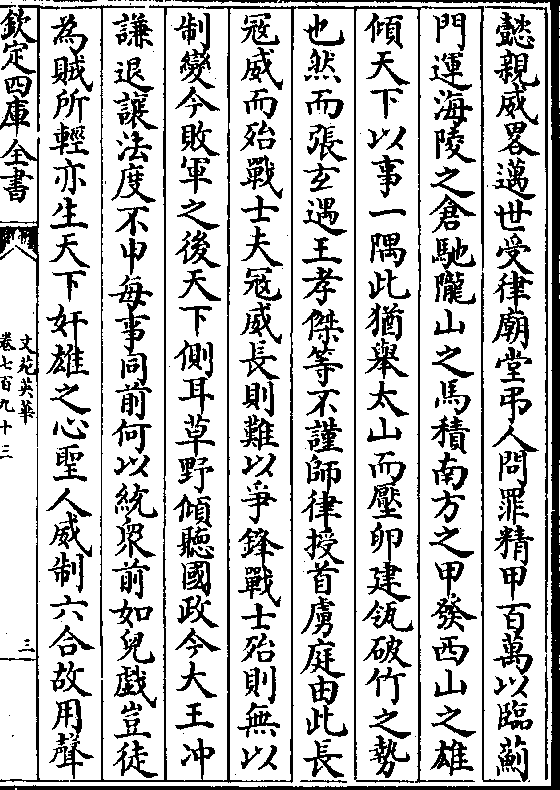 懿親威畧邁世受律廟堂弔人問罪精甲百萬以臨薊
門運海陵之倉馳隴山之馬積南方之甲發西山之雄
傾天下以事一隅此猶舉太山而壓卵建瓴破竹之勢
也然而張玄遇王孝傑等不謹師律授首虜庭由此長
冦威而殆戰士夫冦威長則難以爭鋒戰士殆則無以
制變今敗軍之後天下側耳草野傾聽國政今大王冲
謙退讓法度不申每事同前何以統衆前如兒戲豈徒
為賊所輕亦生天下奸雄之心聖人威制六合故用聲
欽定四庫全書
文苑英華
卷七百九十三
三